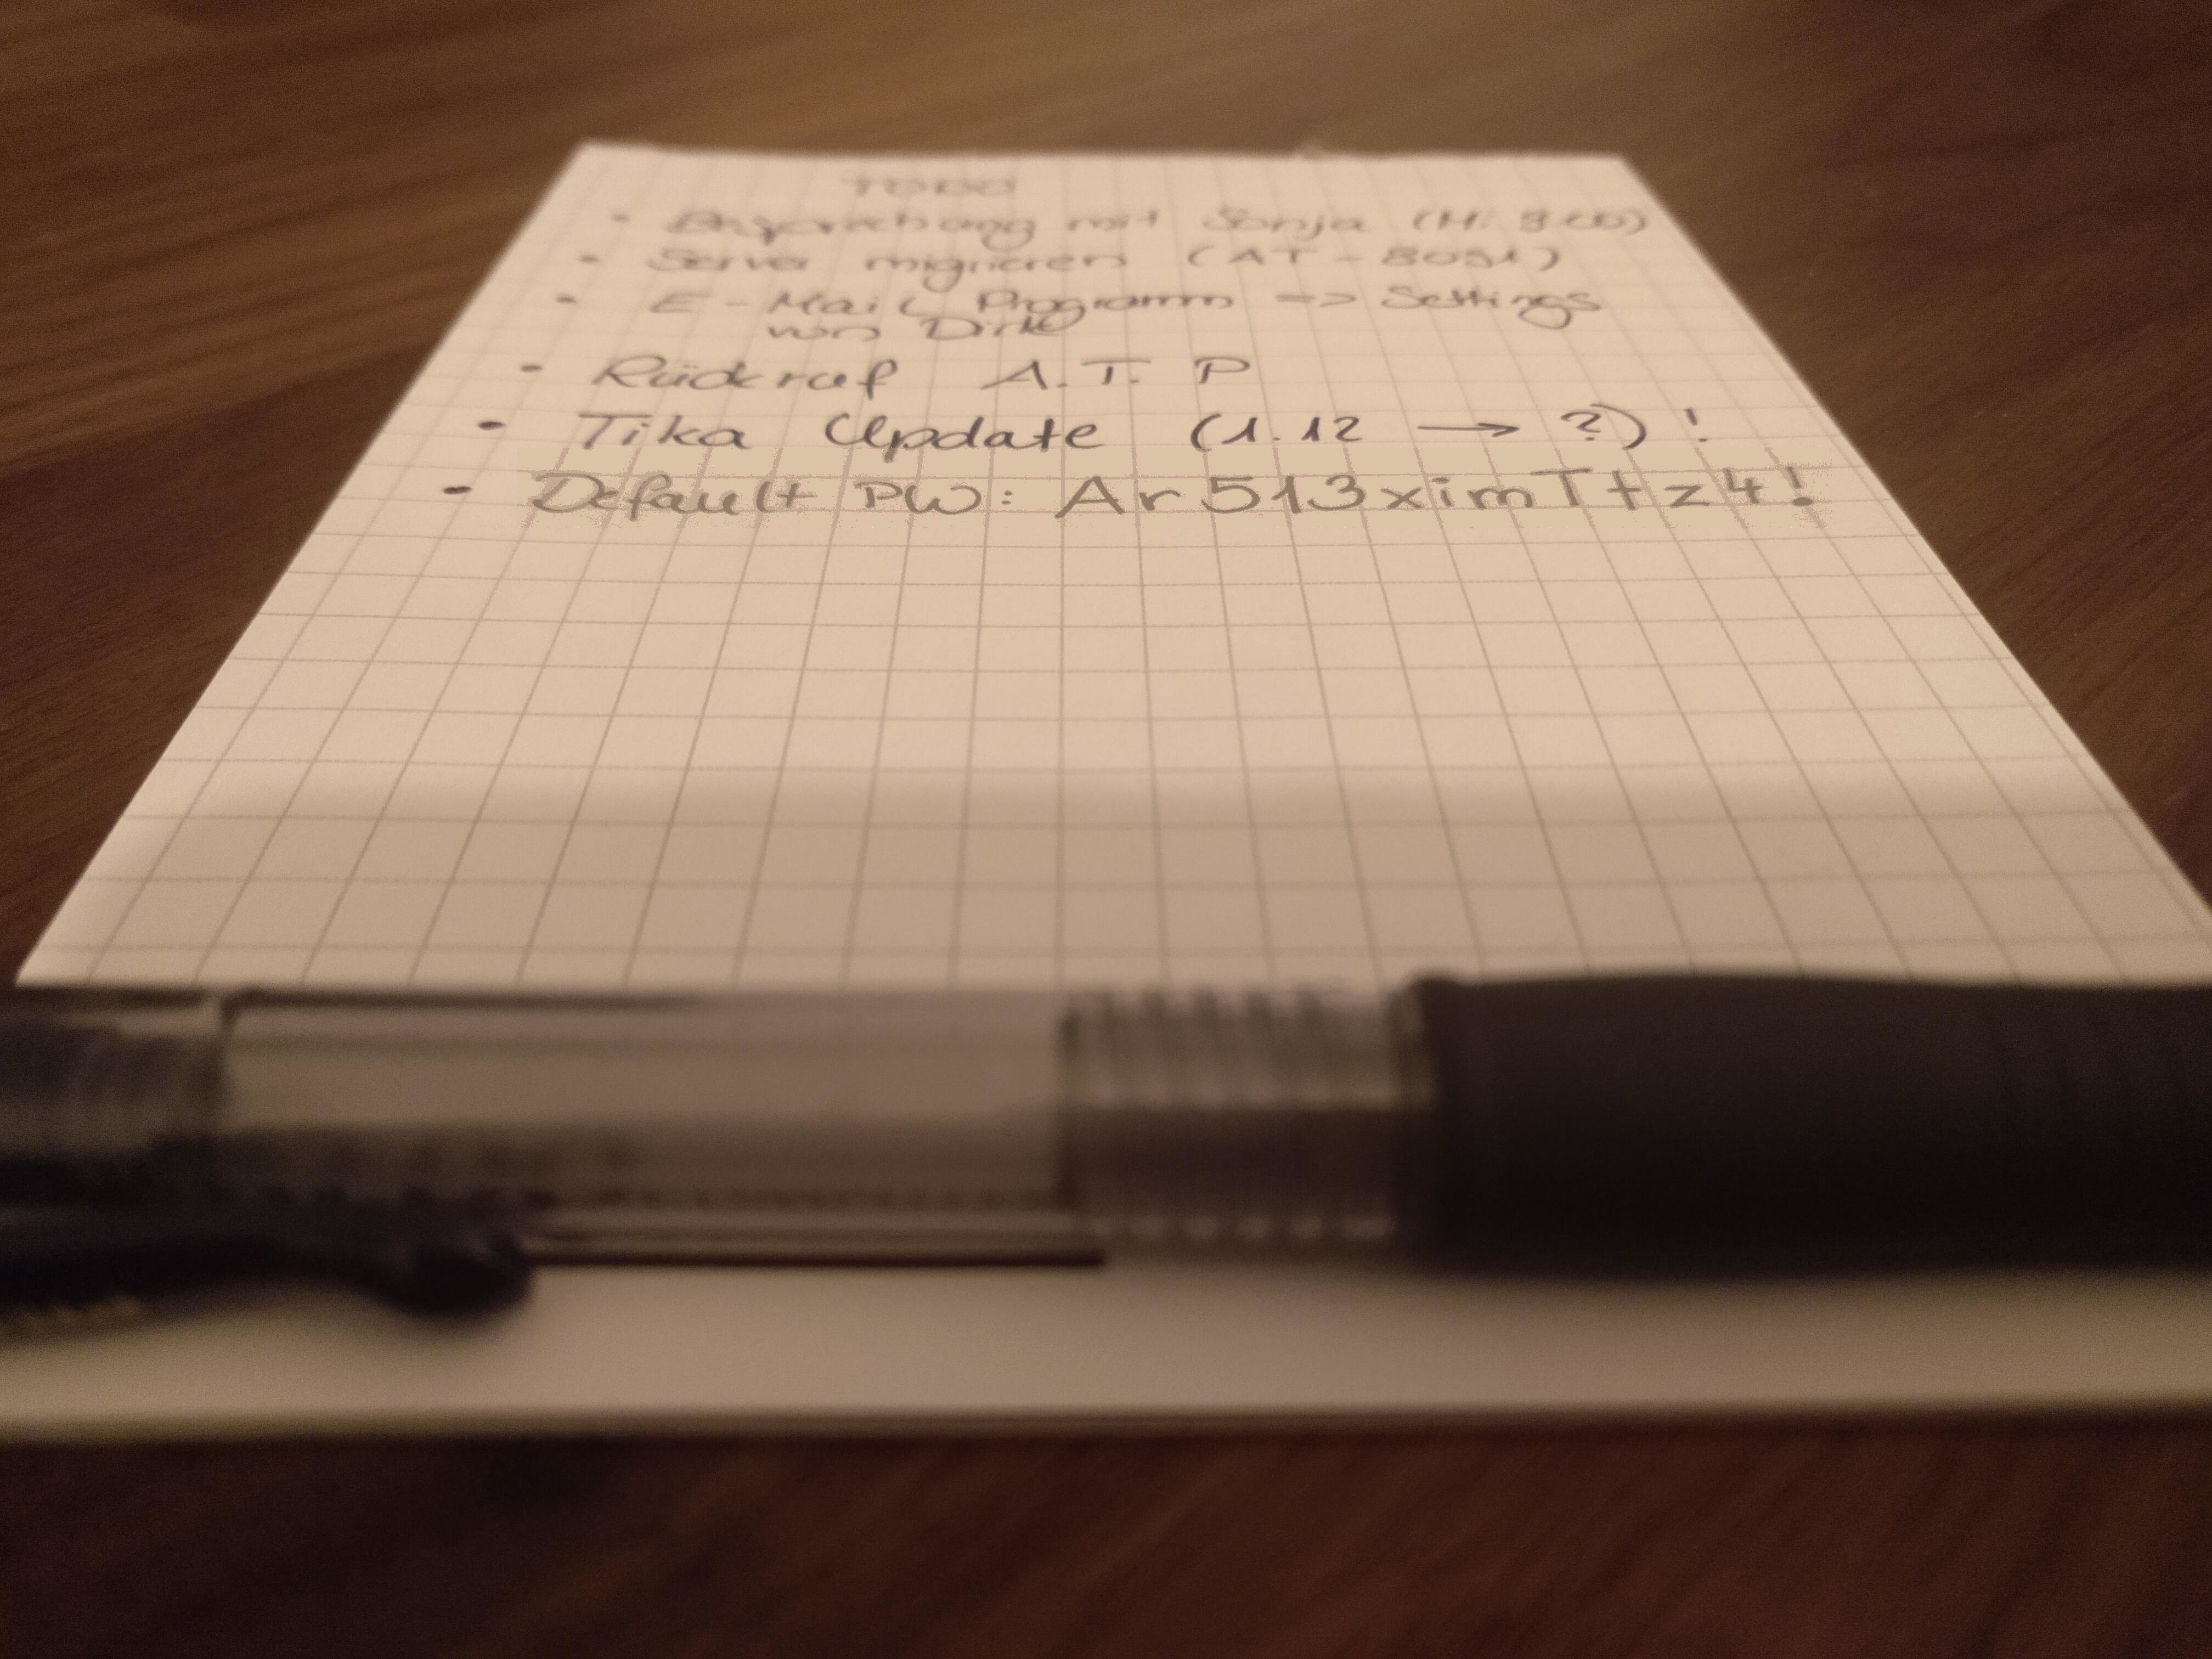 TODO
• Besprechung mit Sonja (Mi. 9:00)
• Server migrieren (AT-8091)
• E-Mail Programm => Settings
von Dirk
• Rückruf A.T. P
• Tika Update (1.12 → ?) !
- Default PW: Ar513ximTtz4!